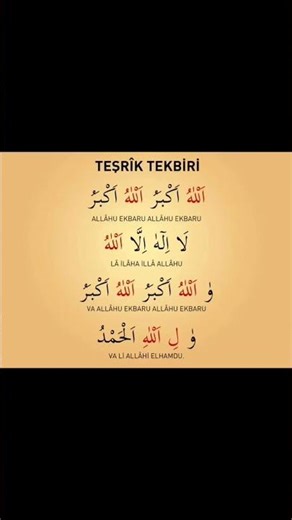 TEŞRÎK TEKBİRİ
اَللّٰهُ اَكْبَرُ اَللّٰهُ اَكْبَرُ
ALLÂHU EKBARU ALLÂHU EKBARU
لَا اِلٰهَ اِلَّا اَللّٰهُ
LÂ İLÂHA İLLÂ ALLÂHU
وَ اَللّٰهُ اَكْبَرُ اَللّٰهُ اَكْبَرُ
VA ALLÂHU EKBARU ALLÂHU EKBARU
وَ لِ اَللّٰهِ اَلْحَمْدُ
VA Lİ ALLÂHİ ELHAMDU.